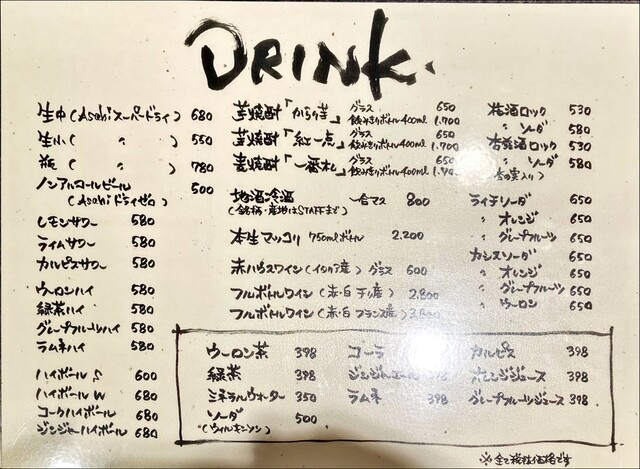 DRINK.
生中(Asahiスーパードライ) 680
生小( 〃 ) 550
瓶( 〃 ) 780
ノンアルコールビール 500
(Asahiドライゼロ)
レモンサワー 580
ライムサワー 580
カルピスサワー 580
ウーロンハイ 580
緑茶ハイ 580
グレープフルーツハイ 580
ラムネハイ 580
ハイボール S 600
ハイボール W 680
コークハイボール 680
ジンジャーハイボール 680
芋焼酎「からり芋」 グラス 650
飲みきりボトル400ml 1,700
芋焼酎「紅一点」 グラス 650
飲みきりボトル400ml 1,700
麦焼酎「一番札」 グラス 650
飲みきりボトル400ml
地酒冷酒 一合マス 800
(銘柄・産地はSTAFFまで)
本生マッコリ 750mlボトル 2,200
赤ハウスワイン(イタリア産) グラス 600
フルボトルワイン(赤・白 チリ産) 2,800
フルボトルワイン(赤・白 フランス産)
梅酒ロック 530
〃 ソーダ 580
杏露酒ロック 530
〃 ソーダ 580
(杏の実入り)
ライチソーダ 650
〃 オレンジ 650
〃 グレープフルーツ 650
カシスソーダ 650
〃 オレンジ 650
〃 グレープフルーツ 650
〃 ウーロン 650
ウーロン茶 398
緑茶 398
ミネラルウォーター 350
ソーダ 500
(ウィルキンソン)
コーラ
ジンジャーエール
ラムネ 398
カルピス 398
オレンジジュース 398
グレープフルーツジュース 398
※全て税抜価格です